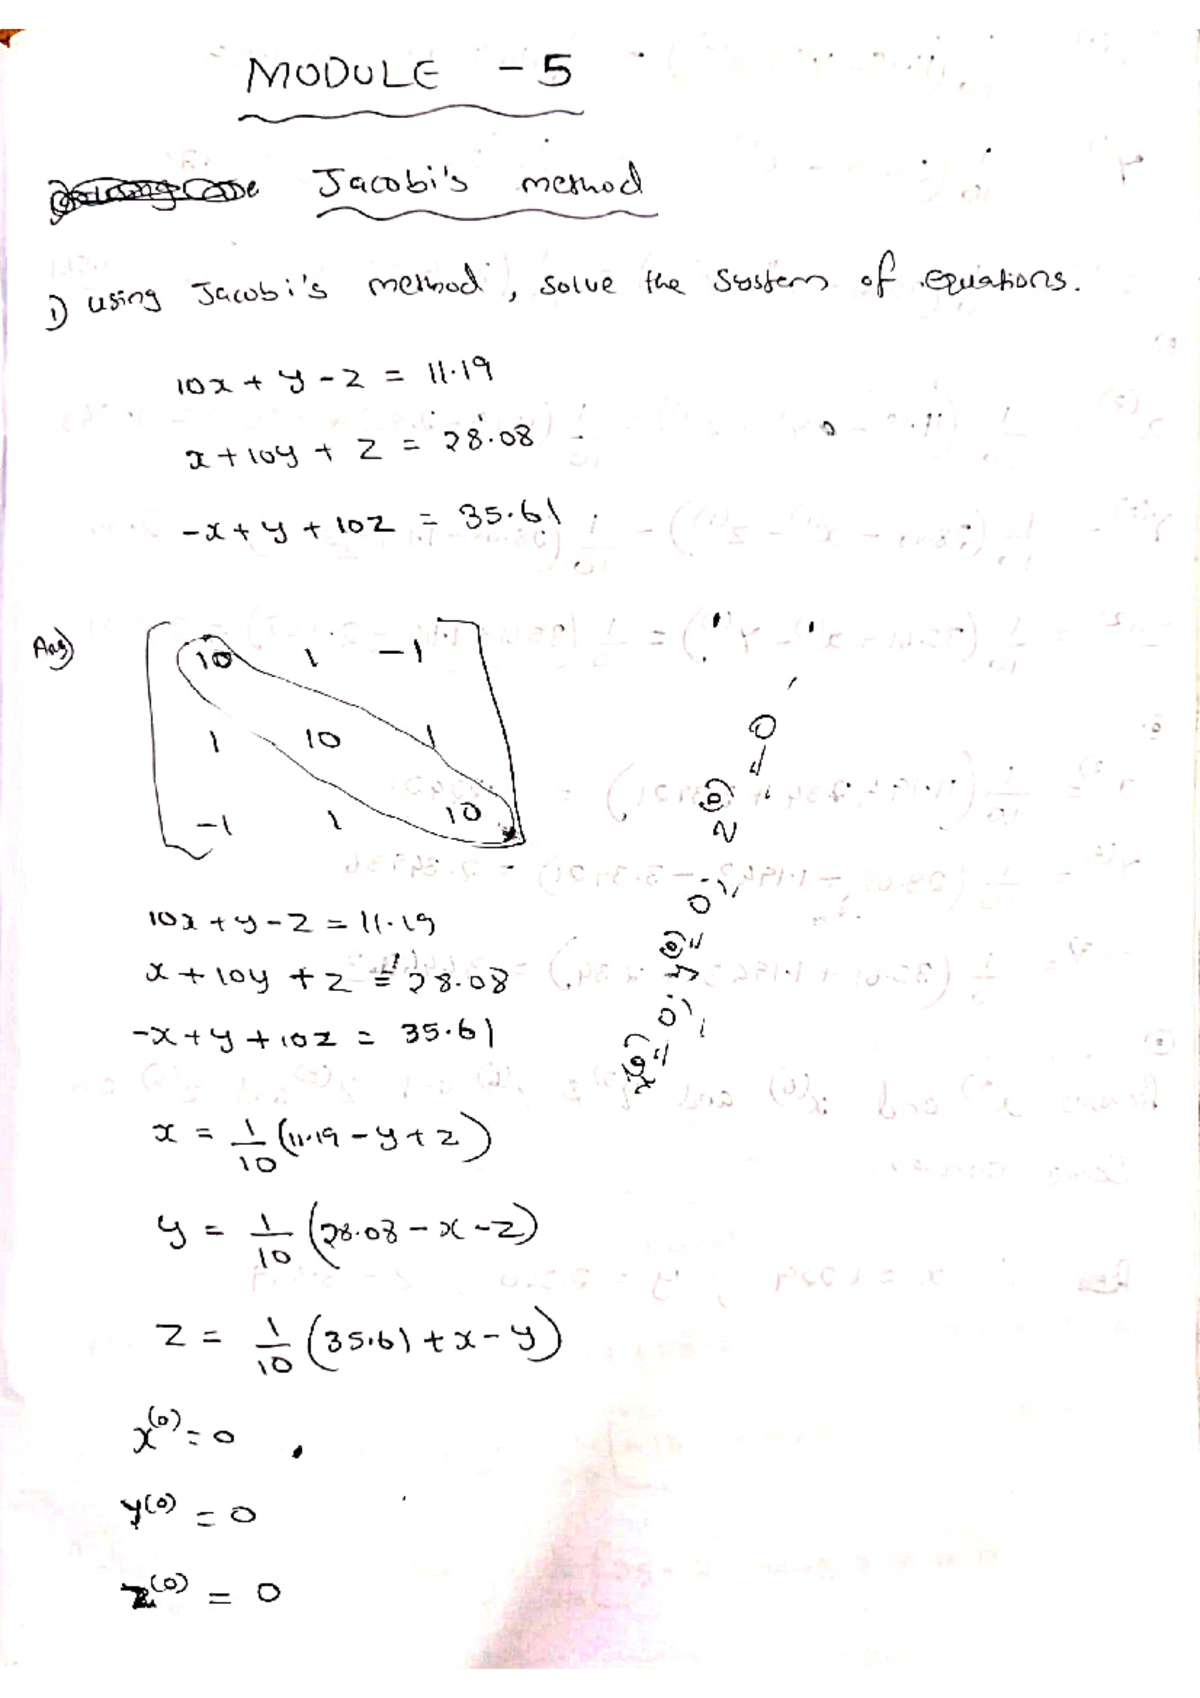 MODULE - 5
Jacobi's method
1) using Jacobi's method, solve the system of equations.
10x + y - z = 11.19
x + 10y + z = 28.08
-x + y + 10z = 35.61
Ans)
10 1 -1
1 10 1
-1 1 10
x(0) = 0; y(0) = 0; z(0) = 0
10x + y - z = 11.19
x + 10y + z = 28.08
-x + y + 10z = 35.61
x = 1/10 (11.19 - y + z)
y = 1/10 (28.08 - x - z)
z = 1/10 (35.61 + x - y)
x(0) = 0
y(0) = 0
z(0) = 0